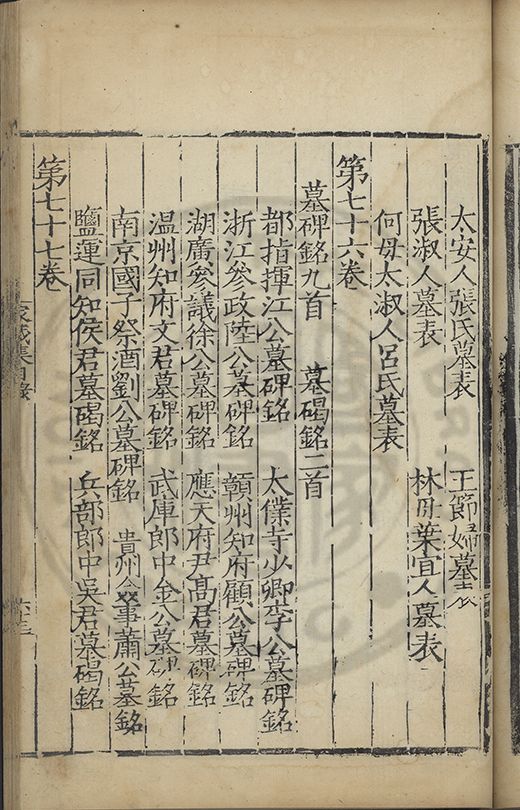 太安人張氏墓表　王節婦墓表
張淑人墓表　林母葉宜人墓表
何母太淑人呂氏墓表
第七十六卷
墓碑銘九首　墓碣銘二首
都指揮江公墓碑銘　太僕寺少卿李公墓碑銘
浙江參政陸公墓碑銘　贛州知府顧公墓碑銘
湖廣參議徐公墓碑銘　應天府尹高君墓碑銘
温州知府文君墓碑銘　武庫郎中金公墓碑銘
南京國子祭酒劉公墓碑銘　貴州僉事蕭公墓銘
鹽運同知侯君墓碣銘　兵部郎中吳君墓碣銘
第七十七卷